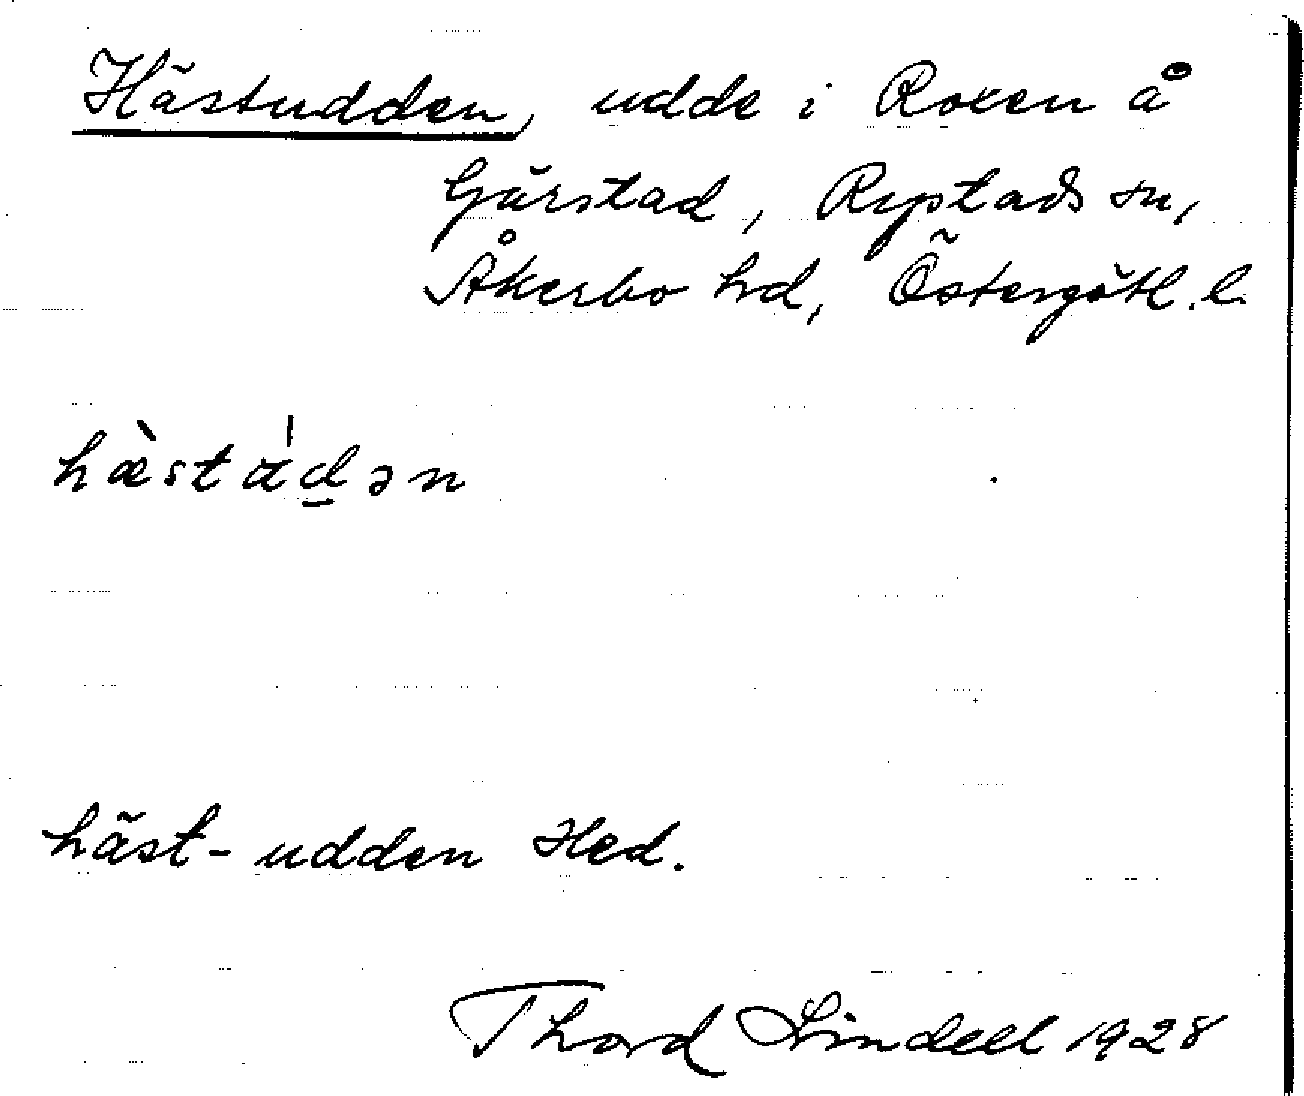 Hästudden, udde i Roxen å
Gärstad, Rystads sn,
Åkerbo hd, Östergötl. l.
hæ̀stádən
häst-udden Hed.
Thord Lindell 1928